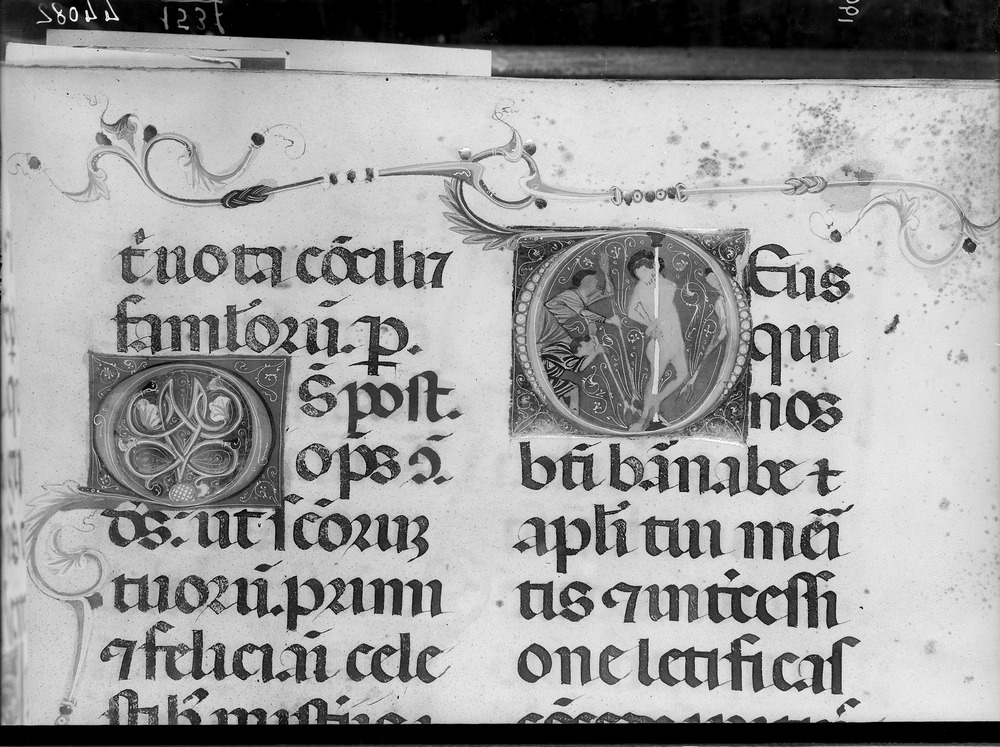 44082
t̃uota cõcili⁊
famłorũ. p.
S̃ post.
ops ɔ̃.
ds̃. ut sc̃oruꝫ
tuorũ. primi
⁊ felicia̅i cele
Eus
qui
nos
bt̃i bãnabe +
apłi tui mei̅
tis ⁊ intc̃essi
one letificas